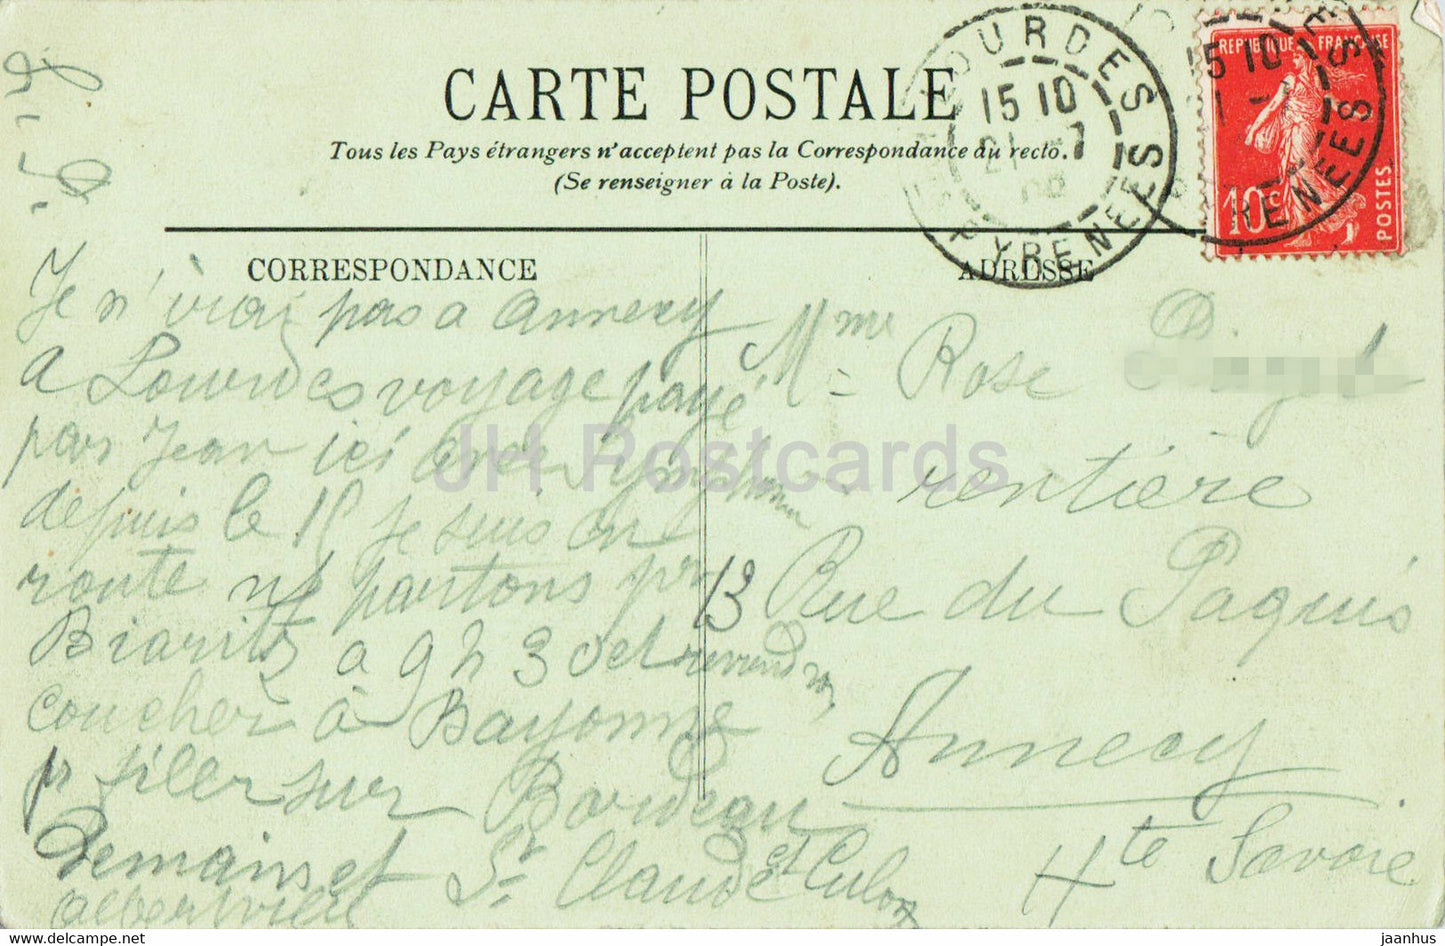 CARTE POSTALE
Tous les Pays étrangers n'acceptent pas la Correspondance au recto.
(Se renseigner à la Poste).
LOURDES
15 10
21 -7
PYRENEES
REPUBLIQUE FRANÇAISE
10c
POSTES
CORRESPONDANCE
ADRESSE
Je n'irai pas a Annecy
a Lourdes voyage payé
par Jean ici avec
depuis le 15 je suis en
route ns partons pr
Biaritz a 9 h 3 et reviendrons
coucher à Bayonne
pr filer sur Bordeau
Demain et St Claude et Culoz
albertville
Mme Rose
rentière
13 Rue du Paquis
Annecy
Hte Savoie
JH Postcards
www.delcampe.net
jaanhus